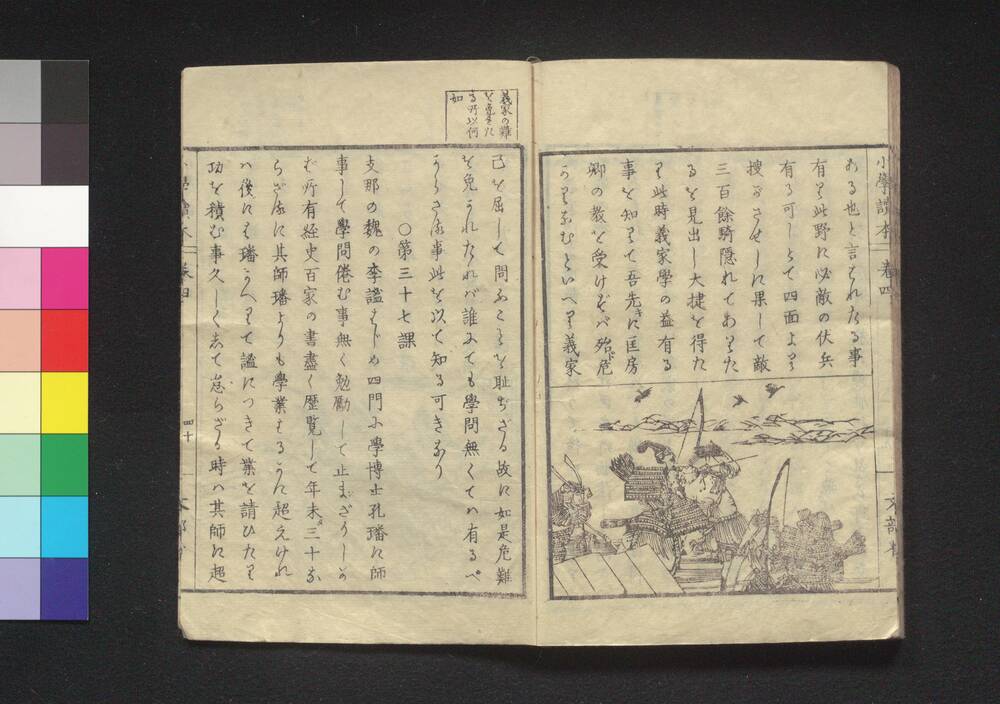 小學讀本 卷四
ある也と言はれたる事
有り此野に必敵の伏兵
有る可しとて四面より
搜ぐさせしに果して敵
三百餘騎隠れてありた
るを見出し大捷を得た
り此時義家學の益有る
事を知りて吾先きに匡房
卿の教を受けずバ殆ド危
うりなむといへり義家
義家の難
を免れたる所以何
如
己を屈して問ふことを耻ぢざる故に如是危難
を免うれたれバ誰にても學問無くてハ有るべ
うらざる事此を以て知る可きなり
○第三十七課
支那の魏の李謐はじめ四門小學博士孔璠に師
事して學問倦む事無く勉勵して止まざりしう
ば所有経史百家の書盡く歴覧して年未ダ三十な
らざるに其師璠よりも學業はるうに超えけれ
ハ後にハ璠うへりて謐につきて業を請ひたり
功を積む事久しくして怠らざる時ハ其師に超
小學讀本 卷四
四十
文部省